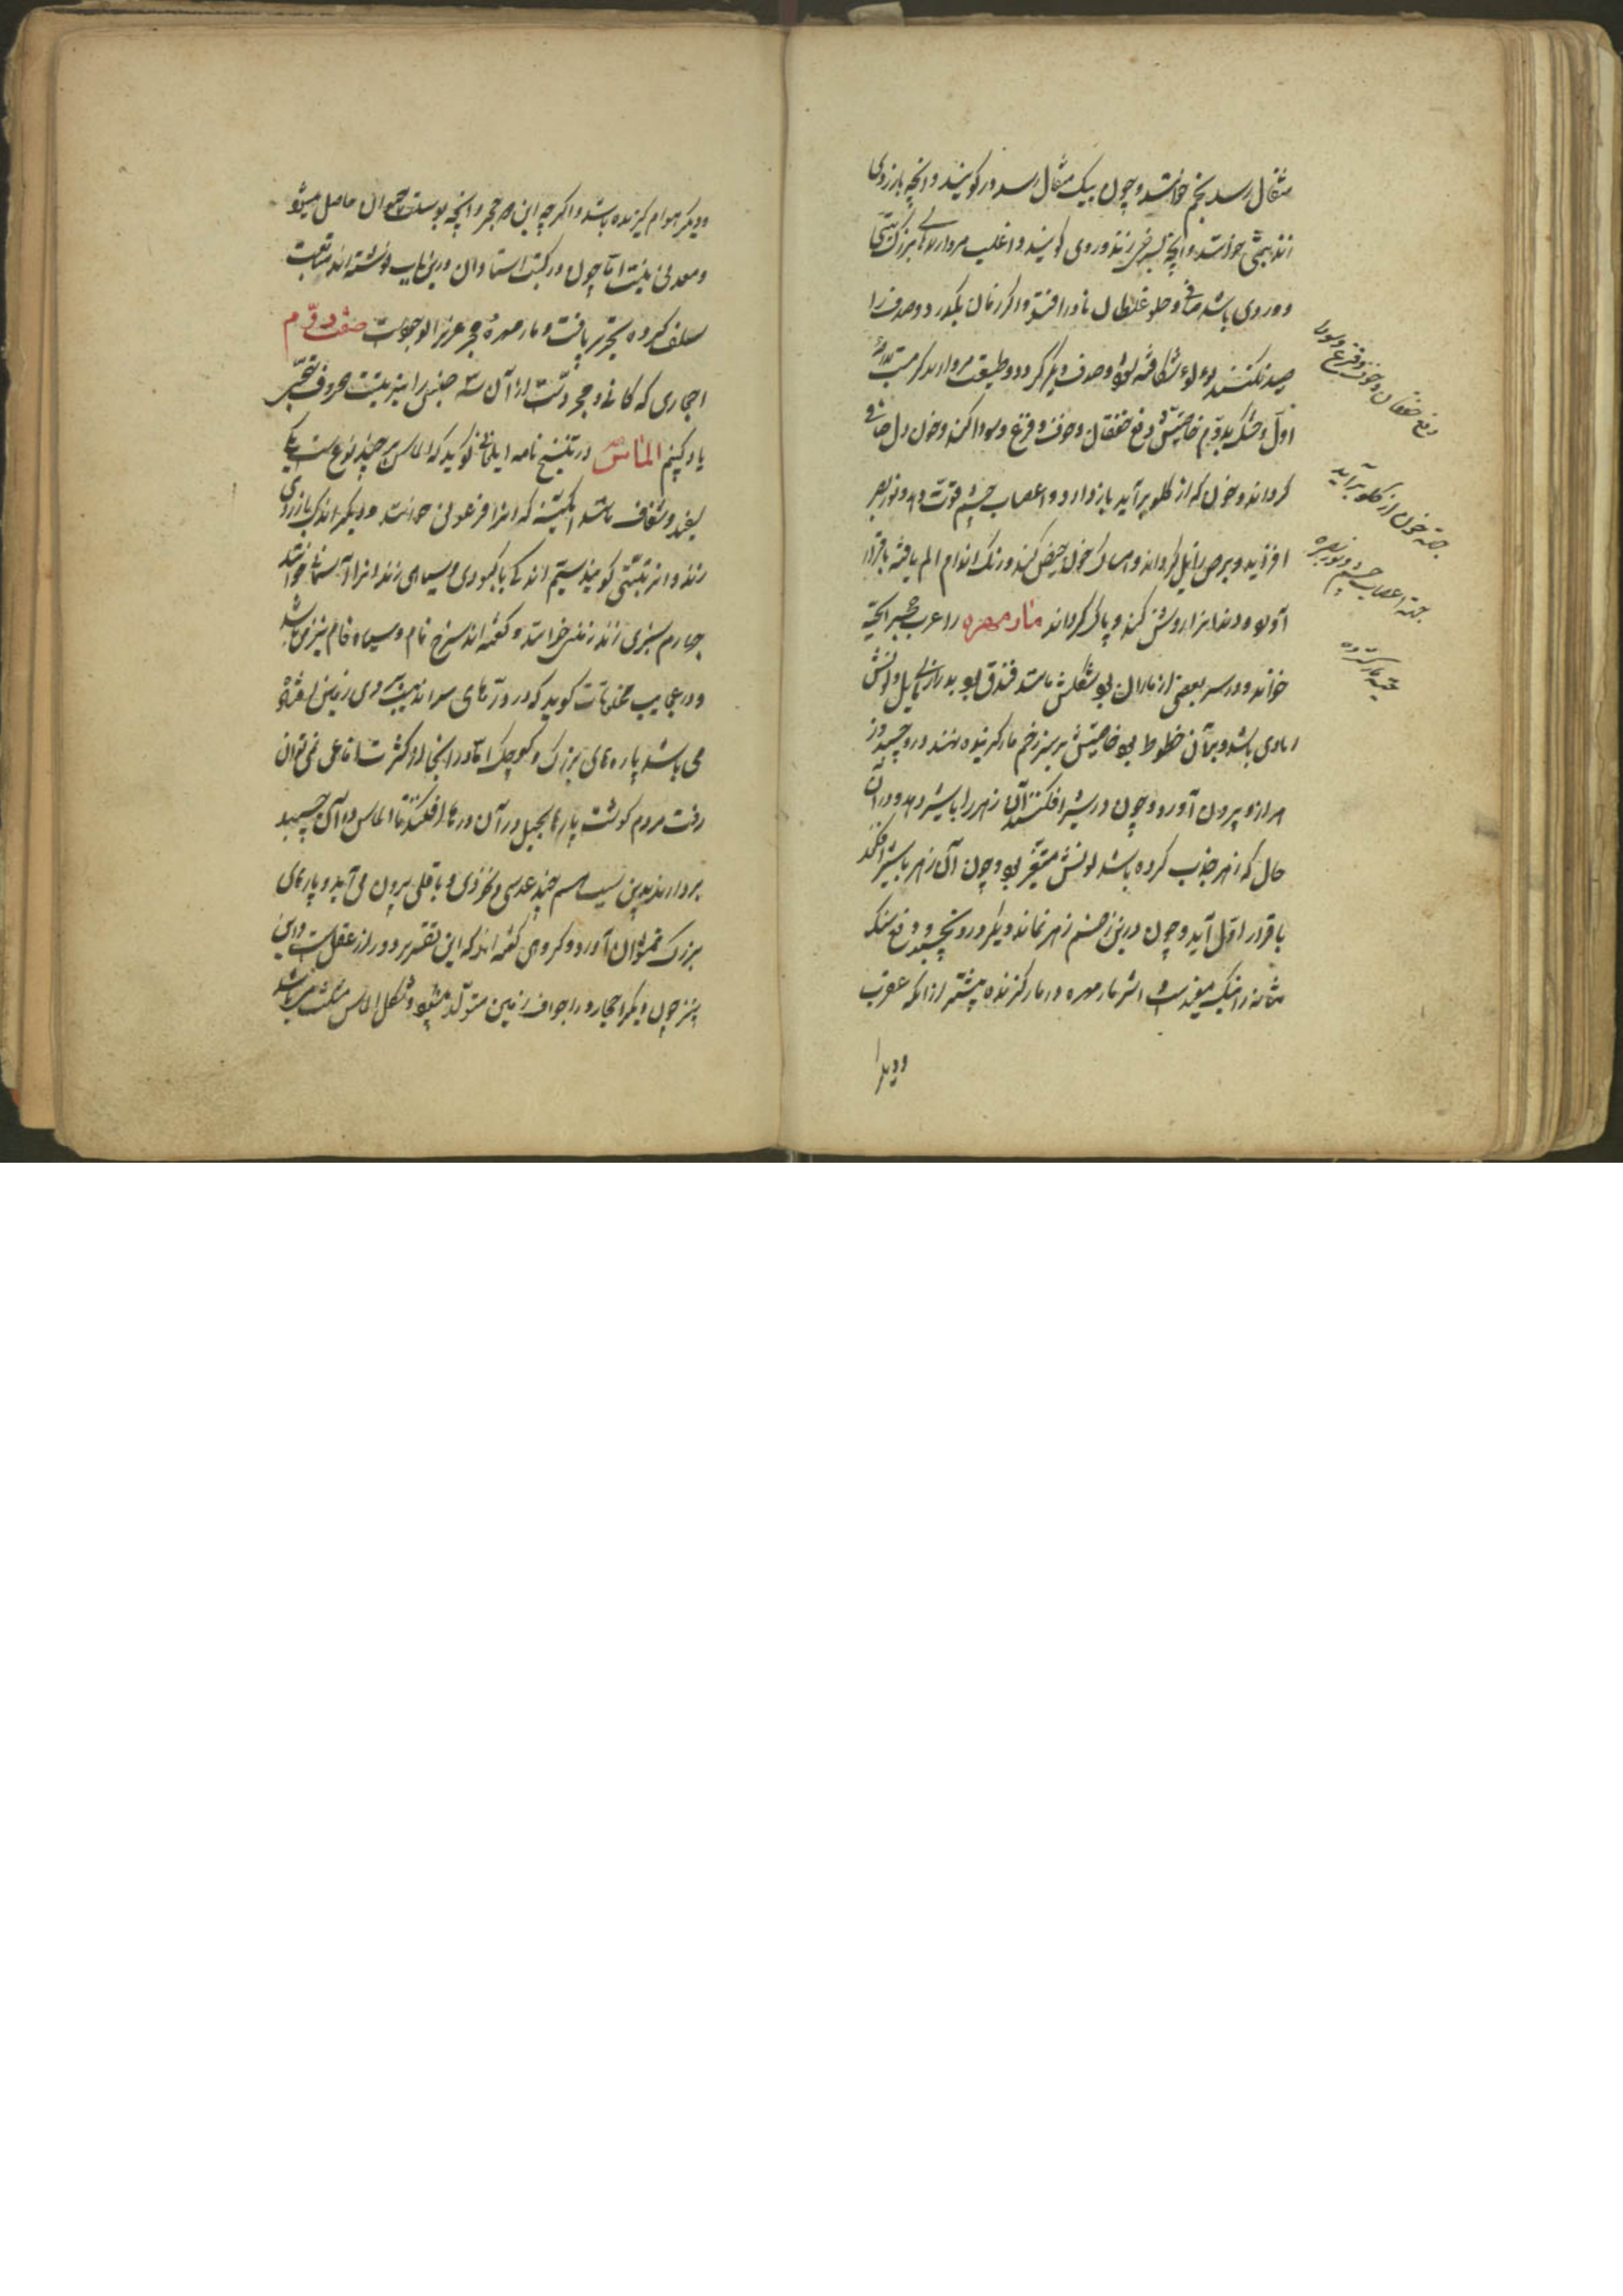 مثقال رسد نجم خوانند و چون بیک مثقال رسد در کویند و انچه بارزدی
زند خوانند و انچه بسرخی زند وردی کویند و اغلب مرواریدهای بزرک
و وردی باشد صافی و حلو غلطان نادر افتد و اگر زمان بکذرد و صدف را
صید نکنند لولو شکافته شود و صدف دیگر گردد و طبیعت مروارید کرمست بدرجه
اول و خشک بدوم خاصیتش دفع خفقان و خوف و فزع و سودا کند و خون دل صافی
کرداند و خون که از کلو برآید بازدارد و اعصاب چشم قوت دهد و نور بصر
افزاید و برص زایل کرداند و امساک خون حیض کند و رنک اندام الم یافته باقرار
آورد و دندانرا روشن کند و پاک کرداند مار مهره را عرب حجر الحیة
خوانند و در سر بعضی از ماران بود شکلش مانند فندق بود بدرازی مایل و لونش
رمادی باشد و بر آن خطوط بود خاصیتش بر سر زخم مار کزیده نهند درو چسبد و ز
هر ازو بیرون آورد و چون در شیر افکنند آن زهر را با شیر دهد و در آن
حال که زهر جذب کرده باشد لونش متغیر بود و چون آن زهر با شیر افکند
با قرار اول آید و چون درین زخم زهر نماند دیگر درو نچسبد و دفع سنک
مثانه را نیک مفید است و اثر مار مهره در مار کزنده بیشتر از انکه عقرب
و دیگر
دفع خفقان و خوف و فزع و سودا
جهة خون از کلو برآید
جهة اعصاب چشم و نور بصر
جهة مار کزیده
و دیگر هوام کزنده باشد و اگر چه این هر حجر و انچه بوست حیوان حاصل میشود
و معدنی نیست اما چون در کتب استادان درین باب نوشته اند متابعت
سلف کرده تحریر یافت و مار مهره حجر عزیز الوجودست صفت دوم
احجاری که کانی و حجردتست از آن سه جنس را نیز بیت حروف تهجی
یاد کنیم الماس در تنسخ نامه ایلخانی کوید که الماس بر چند نوع است یکی
سفید و شفاف باشد ابکینه که انرا فرعونی خوانند و دیگر اندک بازردی
زند و انرا زیتی کویند سیم اندکی با کبودی و سیاهی زند انرا آسمانی خوانند
چهارم سبزی زند زمردی خوانند و کفته اند سرخ فام و سیاه فام نیز می باشد
و در عجایب مخلوقات کوید که در درهای سراندیب بر روی زمین
می باشد پاره های بزرک و کوچک اما در انجا از کثرت افاعی نمی توان
رفت مردم کوشت پارها بحیل در آن درها افکنند تا الماس در آن چسبد
بردارند بدین سبب هم چند عدسی و نخودی و باقلی بیرون می آید و پارهای
بزرک نمیتوان آورد و کروهی کفته اند که این تقریر دور از عقل است و این
نیز چون دیگر احجار در اجواف زمین متولد میشود و شکل الماس مثلث می باشد